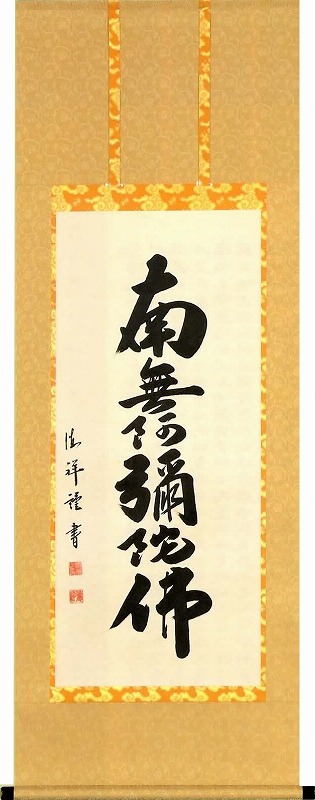 南無阿彌陀佛
祥謹書